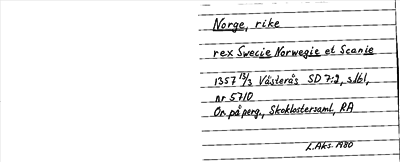 Norge, rike
rex Swecie Norwegie et Scanie
1357 13/3 Västerås SD 7:2, s.161,
nr 5710
Or. på perg., Skoklostersaml, RA
L.Aks. 1980